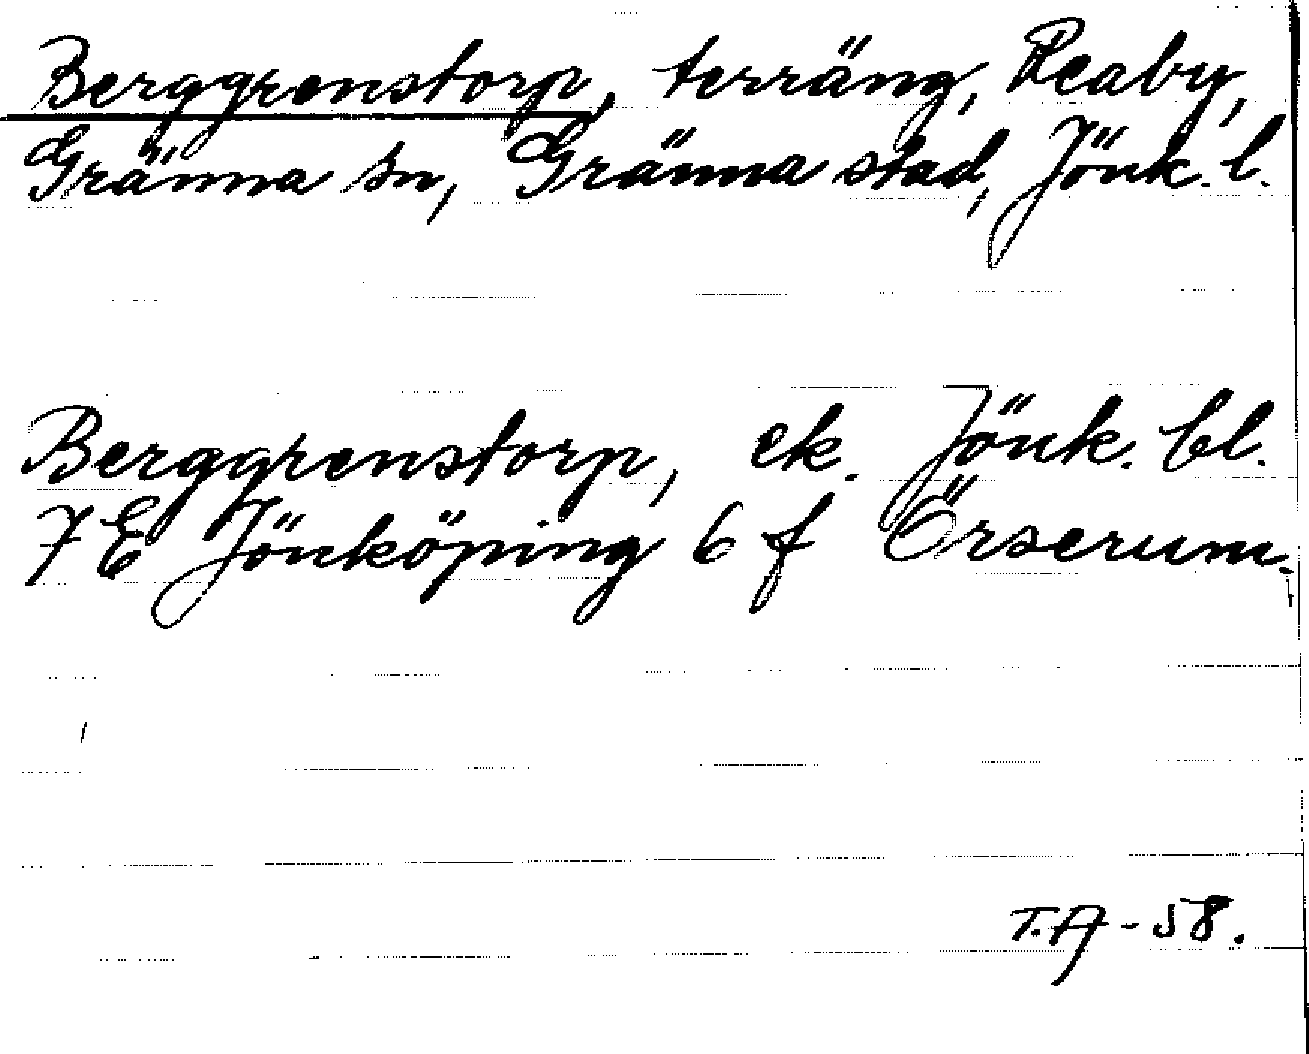 Berggrenstorp, terräng, Reaby,
Gränna sn, Gränna stad, Jönk. l.
Berggrenstorp, ek. Jönk. bl.
7 E Jönköping 6 f Örserum.
T.A - 58.